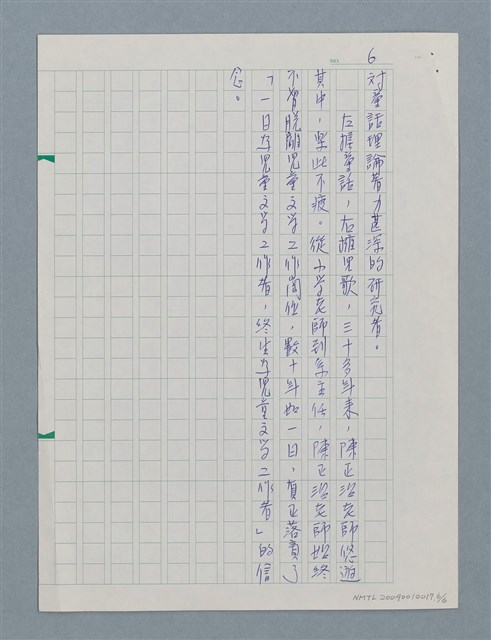 NO. 6
対童話理論著力甚深的研究者。
左握童話，右擁兒歌，三十多年來，陳正治老師悠遊
其中，樂此不疲。從小学老師到系主任，陳正治老師始終
不曾脱離児童文学工作崗位，數十年如一日，真正落實了
「一日为児童文学工作者，終生为児童文学工作者」的信
念。
NMTL 20090010017 6/6